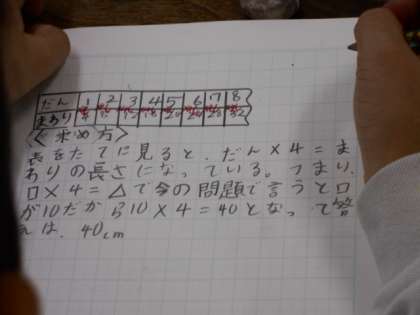 だん 1 2 3 4 5 6 7 8
まわり 4 8 12 16 20 24 28 32
<求め方>
表をたてに見ると、だん×4=ま
わりの長さになっている。つまり、
□×4=△で今の問題で言うと□
が10だから10×4=40となって答
えは、40cm